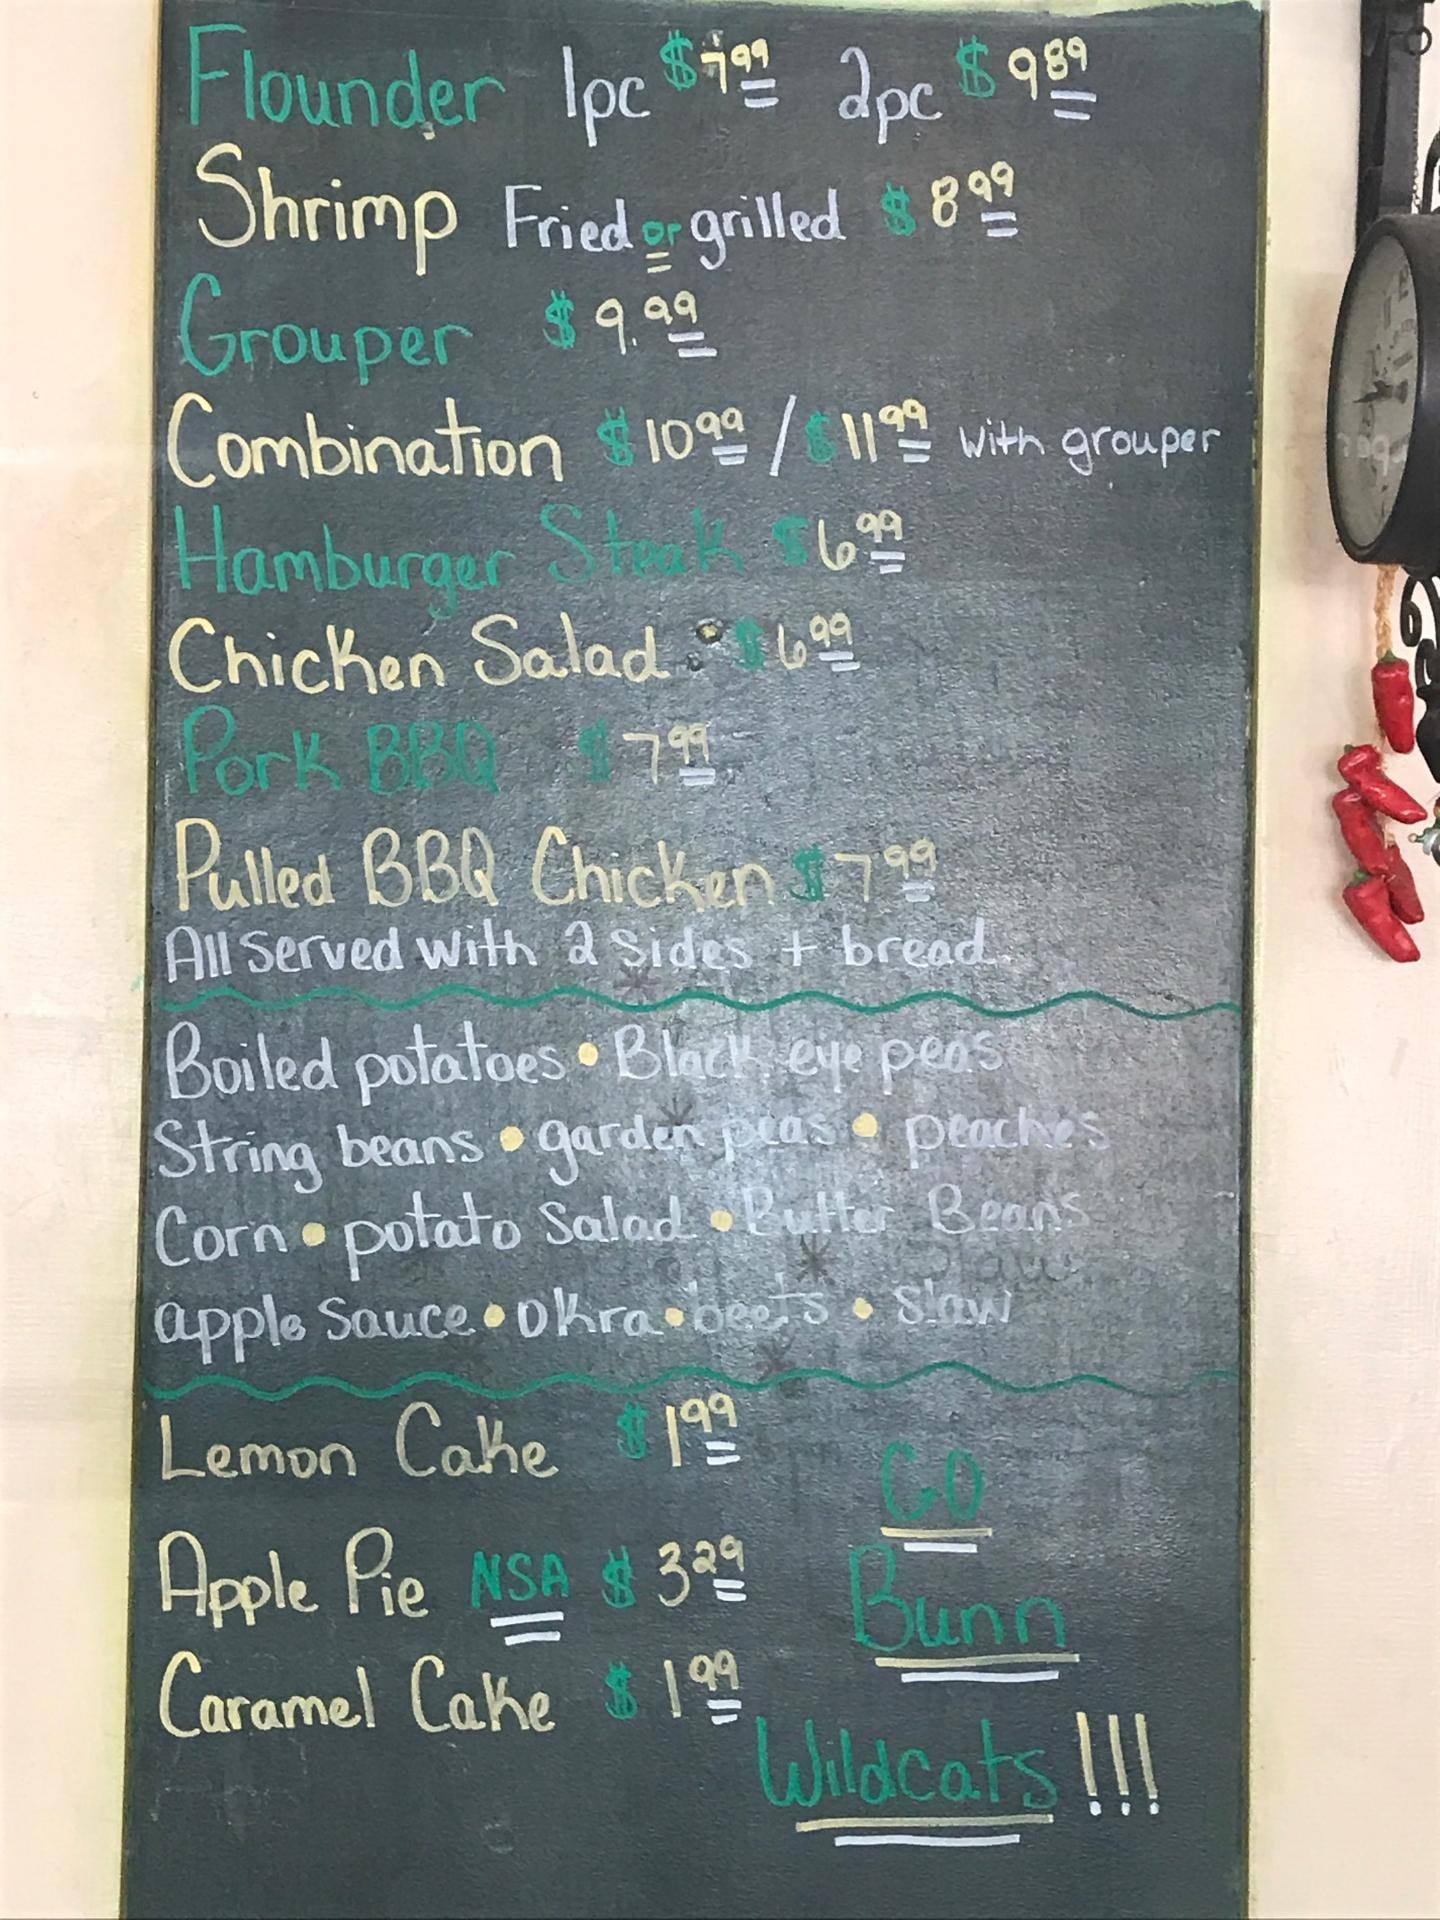 Flounder 1pc $7.99 2pc $9.89
Shrimp Fried or grilled $8.99
Grouper $9.99
Combination $10.99 / $11.99 with grouper
Hamburger Steak $6.99
Chicken Salad $6.99
Pork BBQ $7.99
Pulled BBQ Chicken $7.99
All Served with 2 Sides + bread
Boiled potatoes • Black eye peas
String beans • garden peas • peaches
Corn • potato Salad • Butter Beans
apple Sauce • Okra • beets • Slaw
Lemon Cake $1.99
Apple Pie NSA $3.29
Caramel Cake $1.99
GO
Bunn
Wildcats!!!